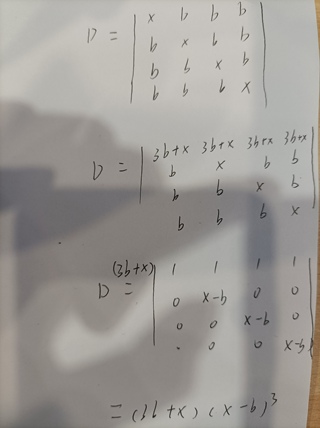 x b b b
D = b x b b
b b x b
b b b x
3b+x 3b+x 3b+x 3b+x
D = b x b b
b b x b
b b b x
(3b+x) 1 1 1 1
D = 0 x-b 0 0
0 0 x-b 0
. 0 0 x-b
= (3b+x) (x-b)³